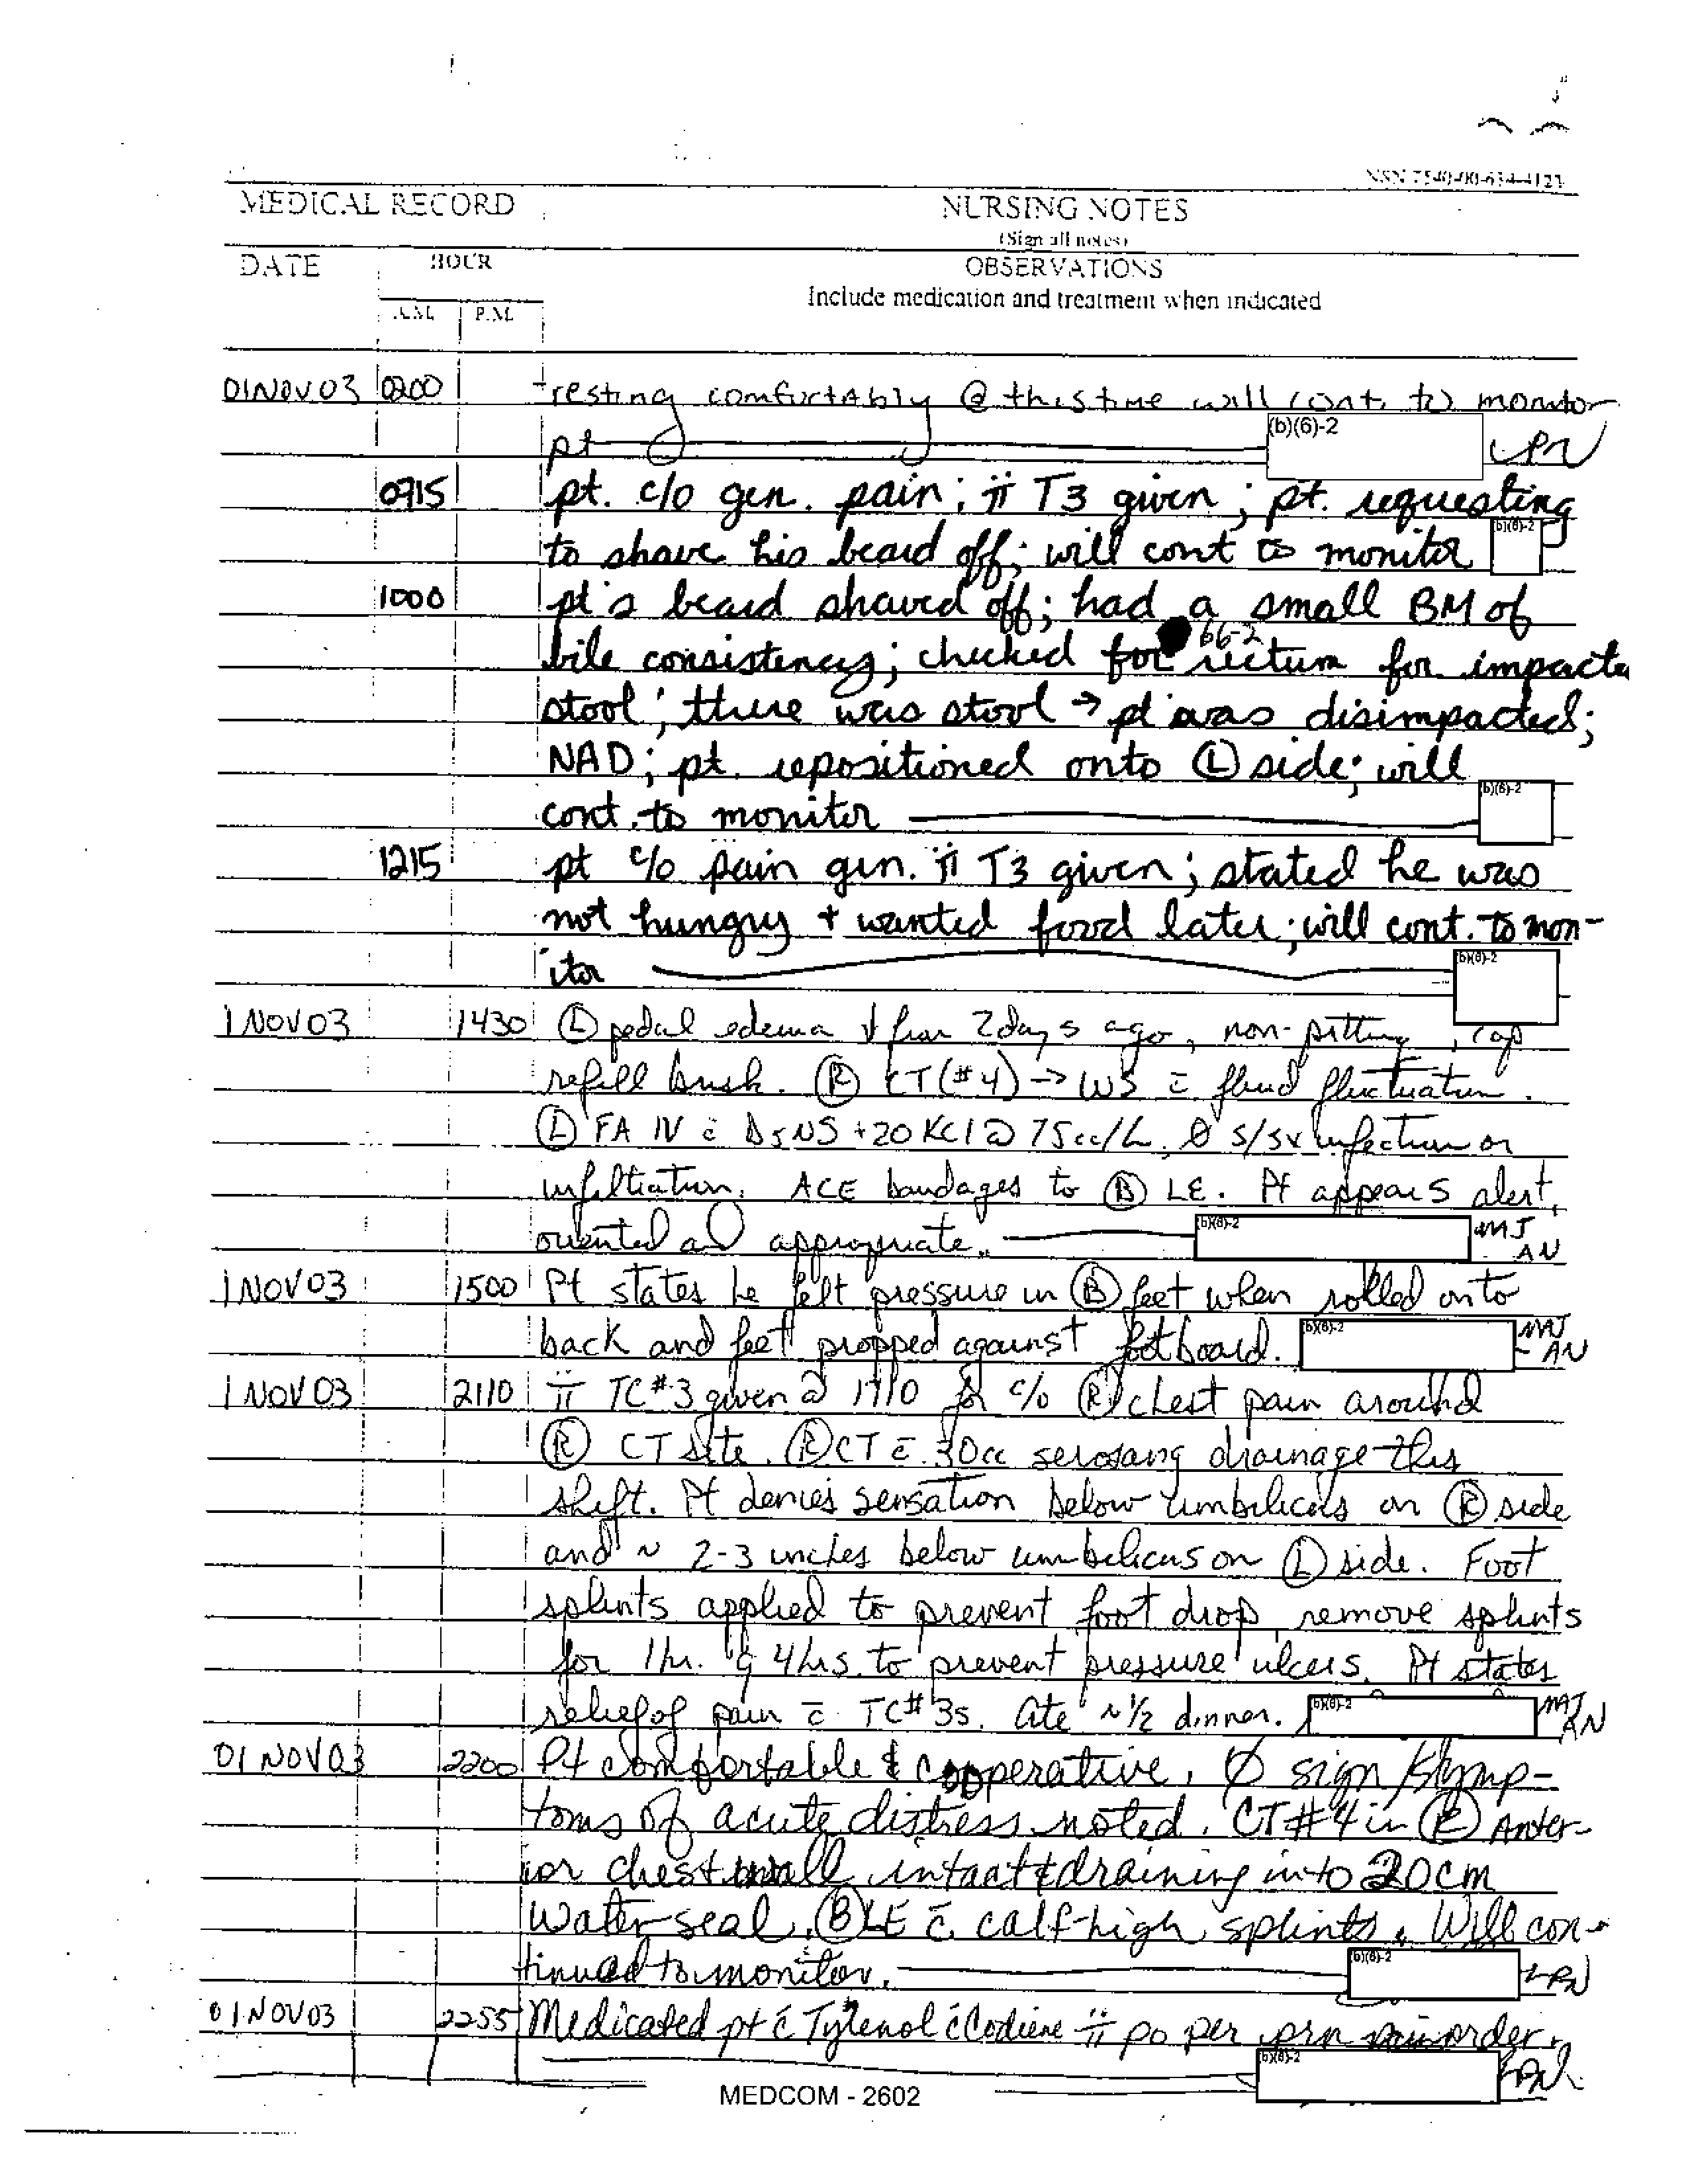 NSN 7540-00-634-4123
MEDICAL RECORD NURSING NOTES
(Sign all notes)
DATE HOUR OBSERVATIONS
Include medication and treatment when indicated
A.M. P.M.
01NOV03 0200 resting comfortably @ this time will cont. to monitor
pt (b)(6)-2 LPN
0715 pt. c/o gen. pain; ii T3 given; pt. requesting
to shave his beard off; will cont to monitor (b)(6)-2
1000 pt's beard shaved off; had a small BM of
b6-2
bile consistency; checked for rectum for impacte
stool; there was stool → pt was disimpacted;
NAD; pt. repositioned onto Ⓛ side; will
cont. to monitor (b)(6)-2
1215 pt c/o pain gen. ii T3 given; stated he was
not hungry + wanted food later; will cont. to mon-
itor (b)(6)-2
1 NOV 03 1430 Ⓛ pedal edema ↓ from 2 days ago, non-pitting, cap
refill brisk. Ⓡ CT (#4) → WS c̄ fluid fluctuation.
Ⓛ FA IV c̄ D5NS + 20 KCl @ 75cc/h, Ø s/sx infection or
infiltration. ACE bandages to Ⓑ LE. Pt appears alert,
oriented and appropriate. (b)(6)-2 MAJ
AN
1 NOV 03 1500 Pt states he felt pressure in Ⓑ feet when rolled onto
back and feet propped against footboard. (b)(6)-2 MAJ
AN
1 NOV 03 2110 ii TC #3 given @ 1710 for c/o Ⓡ chest pain around
Ⓡ CT site. Ⓡ CT c̄ 30cc serosang drainage this
shift. Pt denies sensation below umbilicus on Ⓡ side
and ~ 2-3 inches below umbilicus on Ⓛ side. Foot
splints applied to prevent foot drop, remove splints
for 1hr. q 4hrs to prevent pressure ulcers. Pt states
relief of pain c̄ TC #3s. Ate ~ 1/2 dinner. (b)(6)-2 MAJ
AN
01 NOV 03 2200 Pt comfortable & cooperative, Ø sign/symp-
toms of acute distress noted. CT #4 in Ⓡ Anter-
ior chest wall intact & draining into 20cm
Water seal, Ⓑ LE c̄ calf-high splints. Will con-
tinued to monitor. (b)(6)-2 LPN
01 NOV 03 2255 Medicated pt c̄ Tylenol c̄ Codiene ii po per prn order.
(b)(6)-2 LPN
MEDCOM - 2602